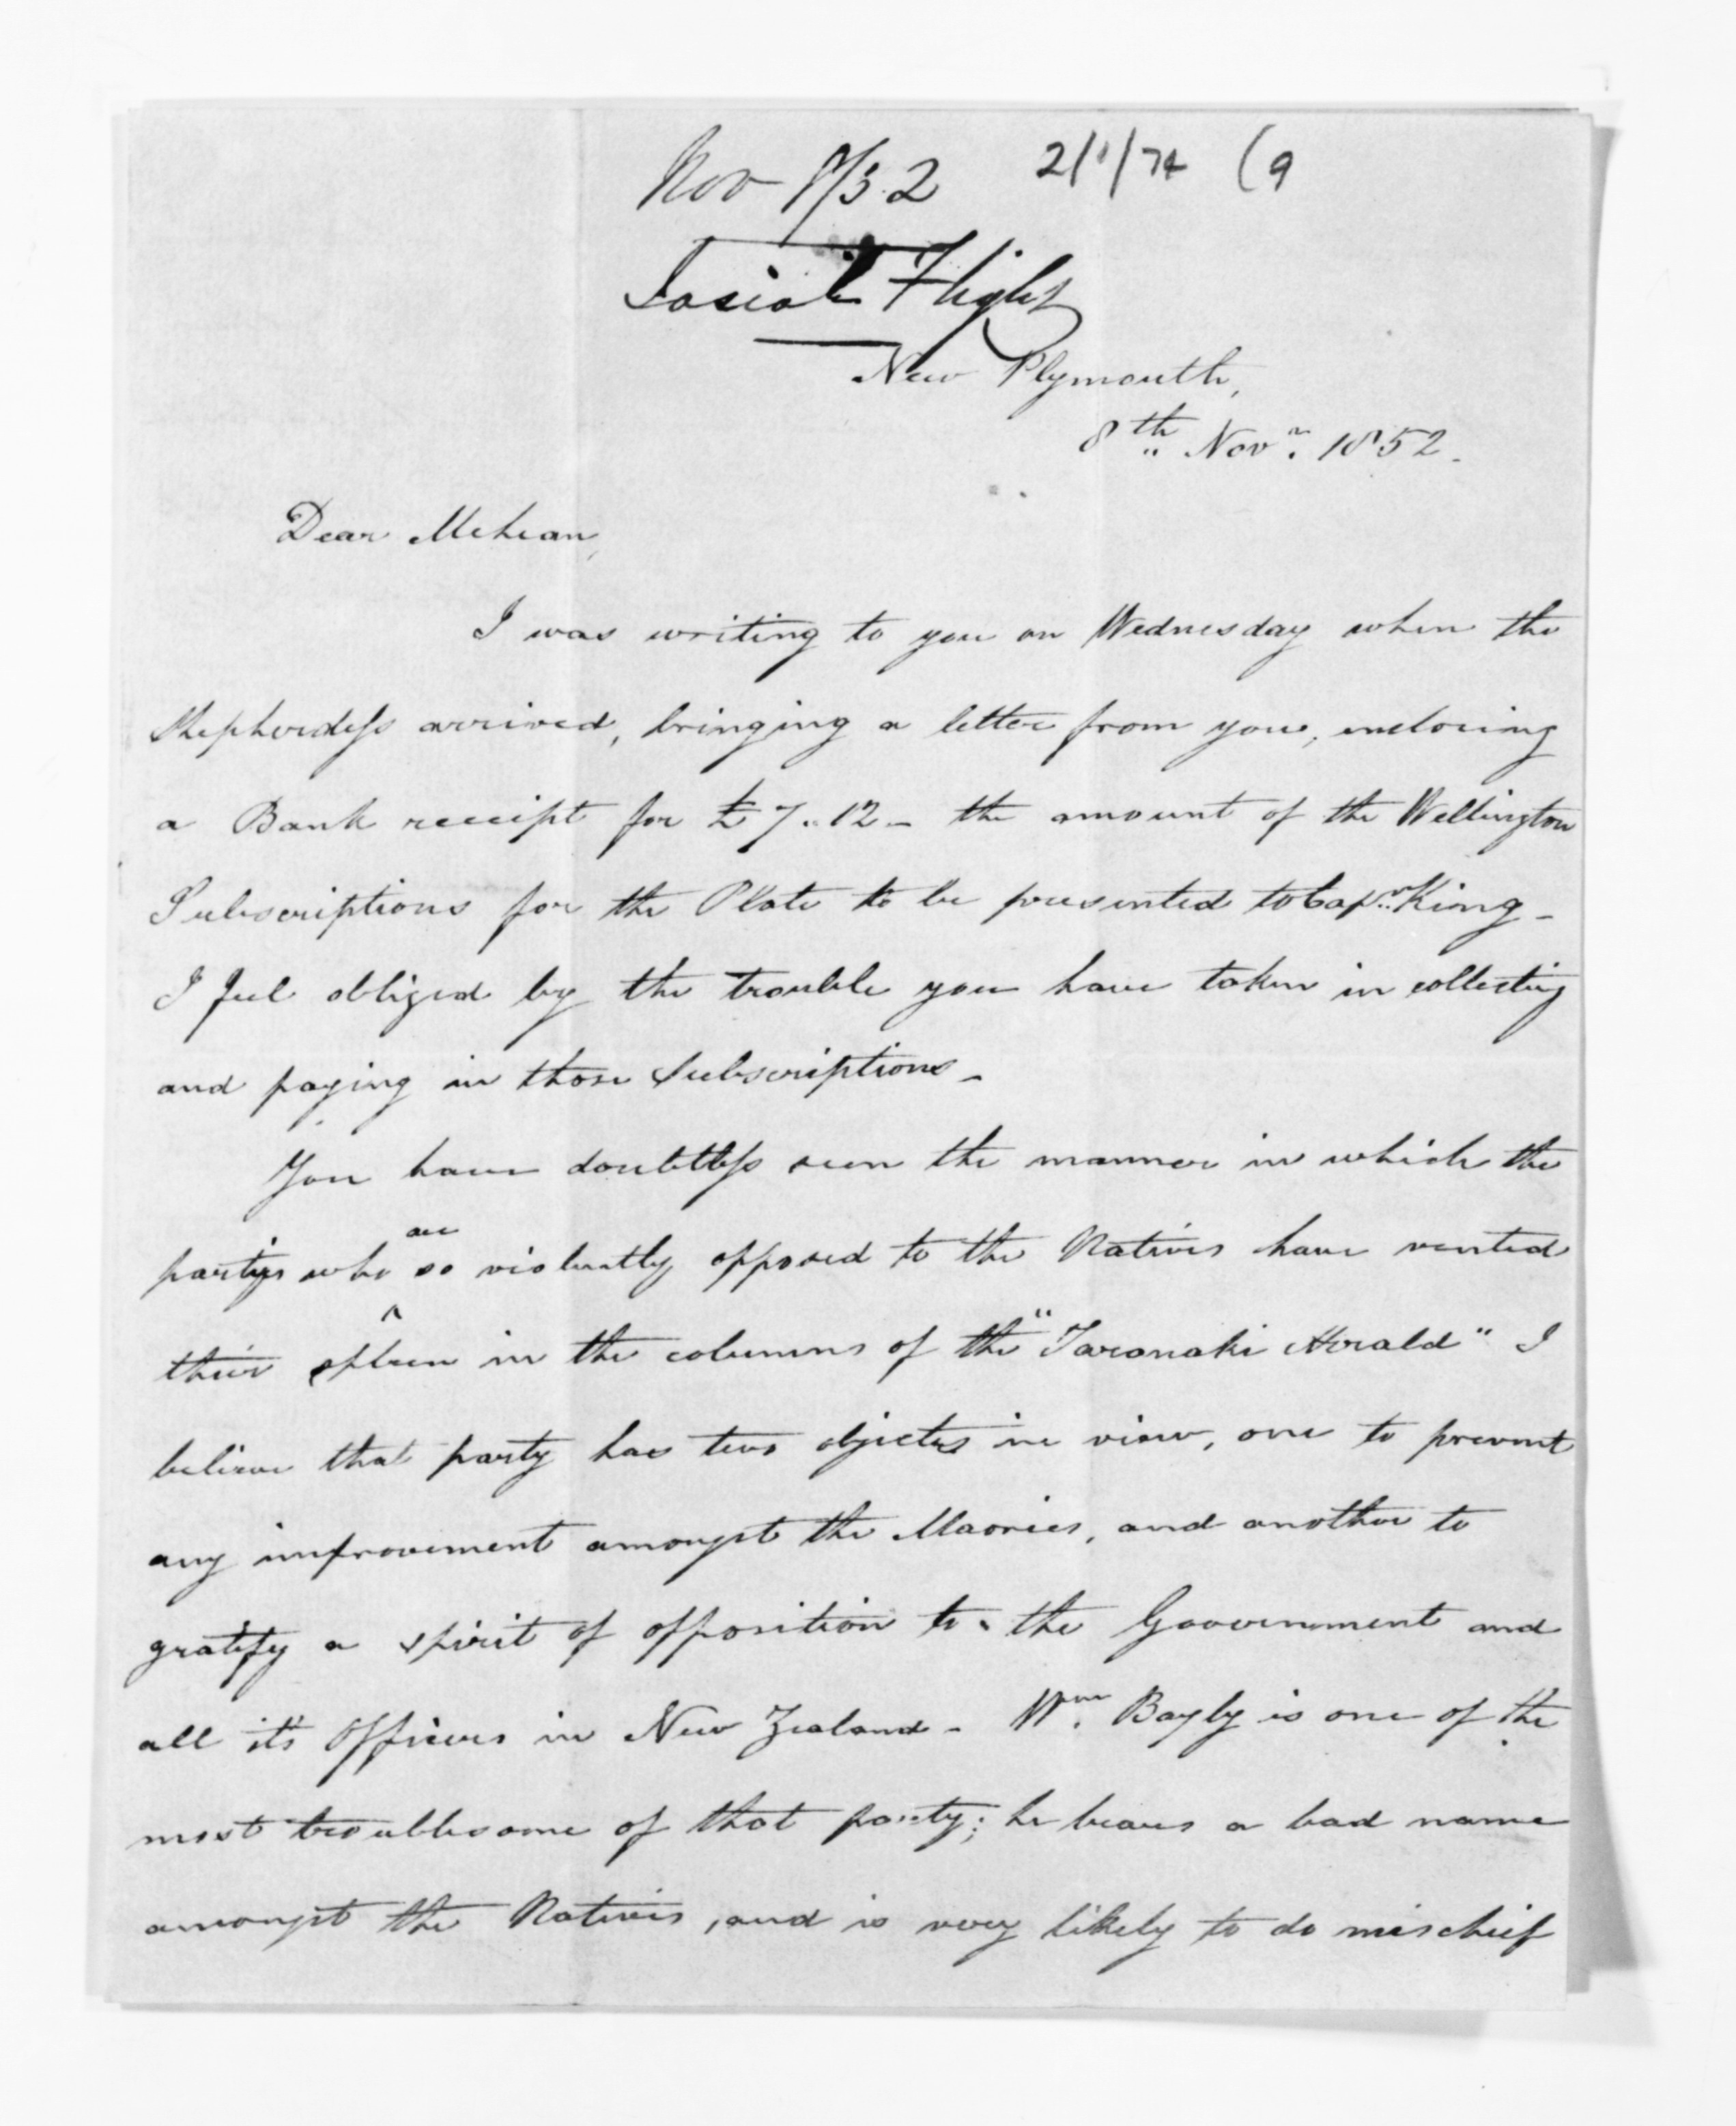 Nov 8/52 2/1/74 (9
Josiah Flight
New Plymouth,
8th Novr. 1852.
Dear McLean,
I was writing to you on Wednesday when the
Shepherdess arrived, bringing a letter from you, enclosing
a Bank receipt for £7..12_ the amount of the Wellington
Subscriptions for the Plate to be presented to Capn. King_
I feel obliged by the trouble you have taken in collecting
and paying in those Subscriptions_
You have doubtless seen the manner in which the
partys who are so violently opposed to the Natives have vented
their spleen in the columns of the "Taranaki Herald" I
believe that party has two objects in view, one to prevent
any improvement amongst the Maories, and another to
gratify a spirit of opposition to the Government and
all it's Officers in New Zealand_ Wm. Bayly is one of the
most troublesome of that party; he bears a bad name
amongst the Natives, and is very likely to do mischief